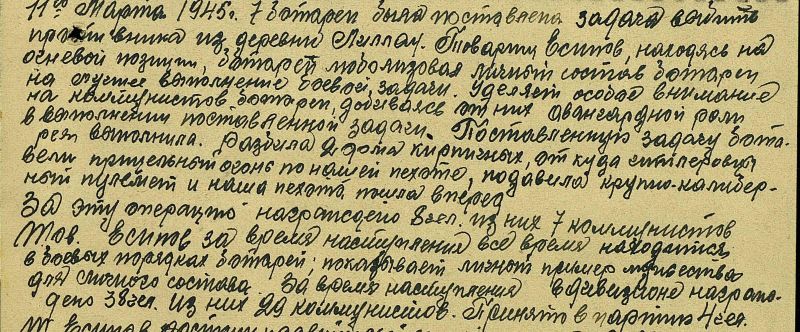 11го Марта 1945г. 7 батареи была поставлена задача выбить
противника из деревни Лиллац. Товарищ Еситов, находясь на
огневой позиции, батареи мобилизовал личный состав батареи
на лучшее выполнение боевой задачи. Уделяет особое внимание
на коммунистов батареи, добиваясь от них авангардной роли
в выполнении поставленной задачи. Поставленную задачу бата-
рея выполнила. Разбила 2 дома кирпичных, от куда гитлеровцы
вели прицельный огонь по нашей пехоте, подавила крупно-калибер-
ный пулемет и наша пехота пошла вперед
За эту операцию награждено 8 чел. из них 7 коммунистов
Тов. Еситов за время наступления всё время находится
в боевых порядках батарей, показывает личный пример мужества
для личного состава. За время наступления в дивизионе награж-
дено 38 чел. Из них 29 коммунистов. Принято в партию 4 чел.
Еситов